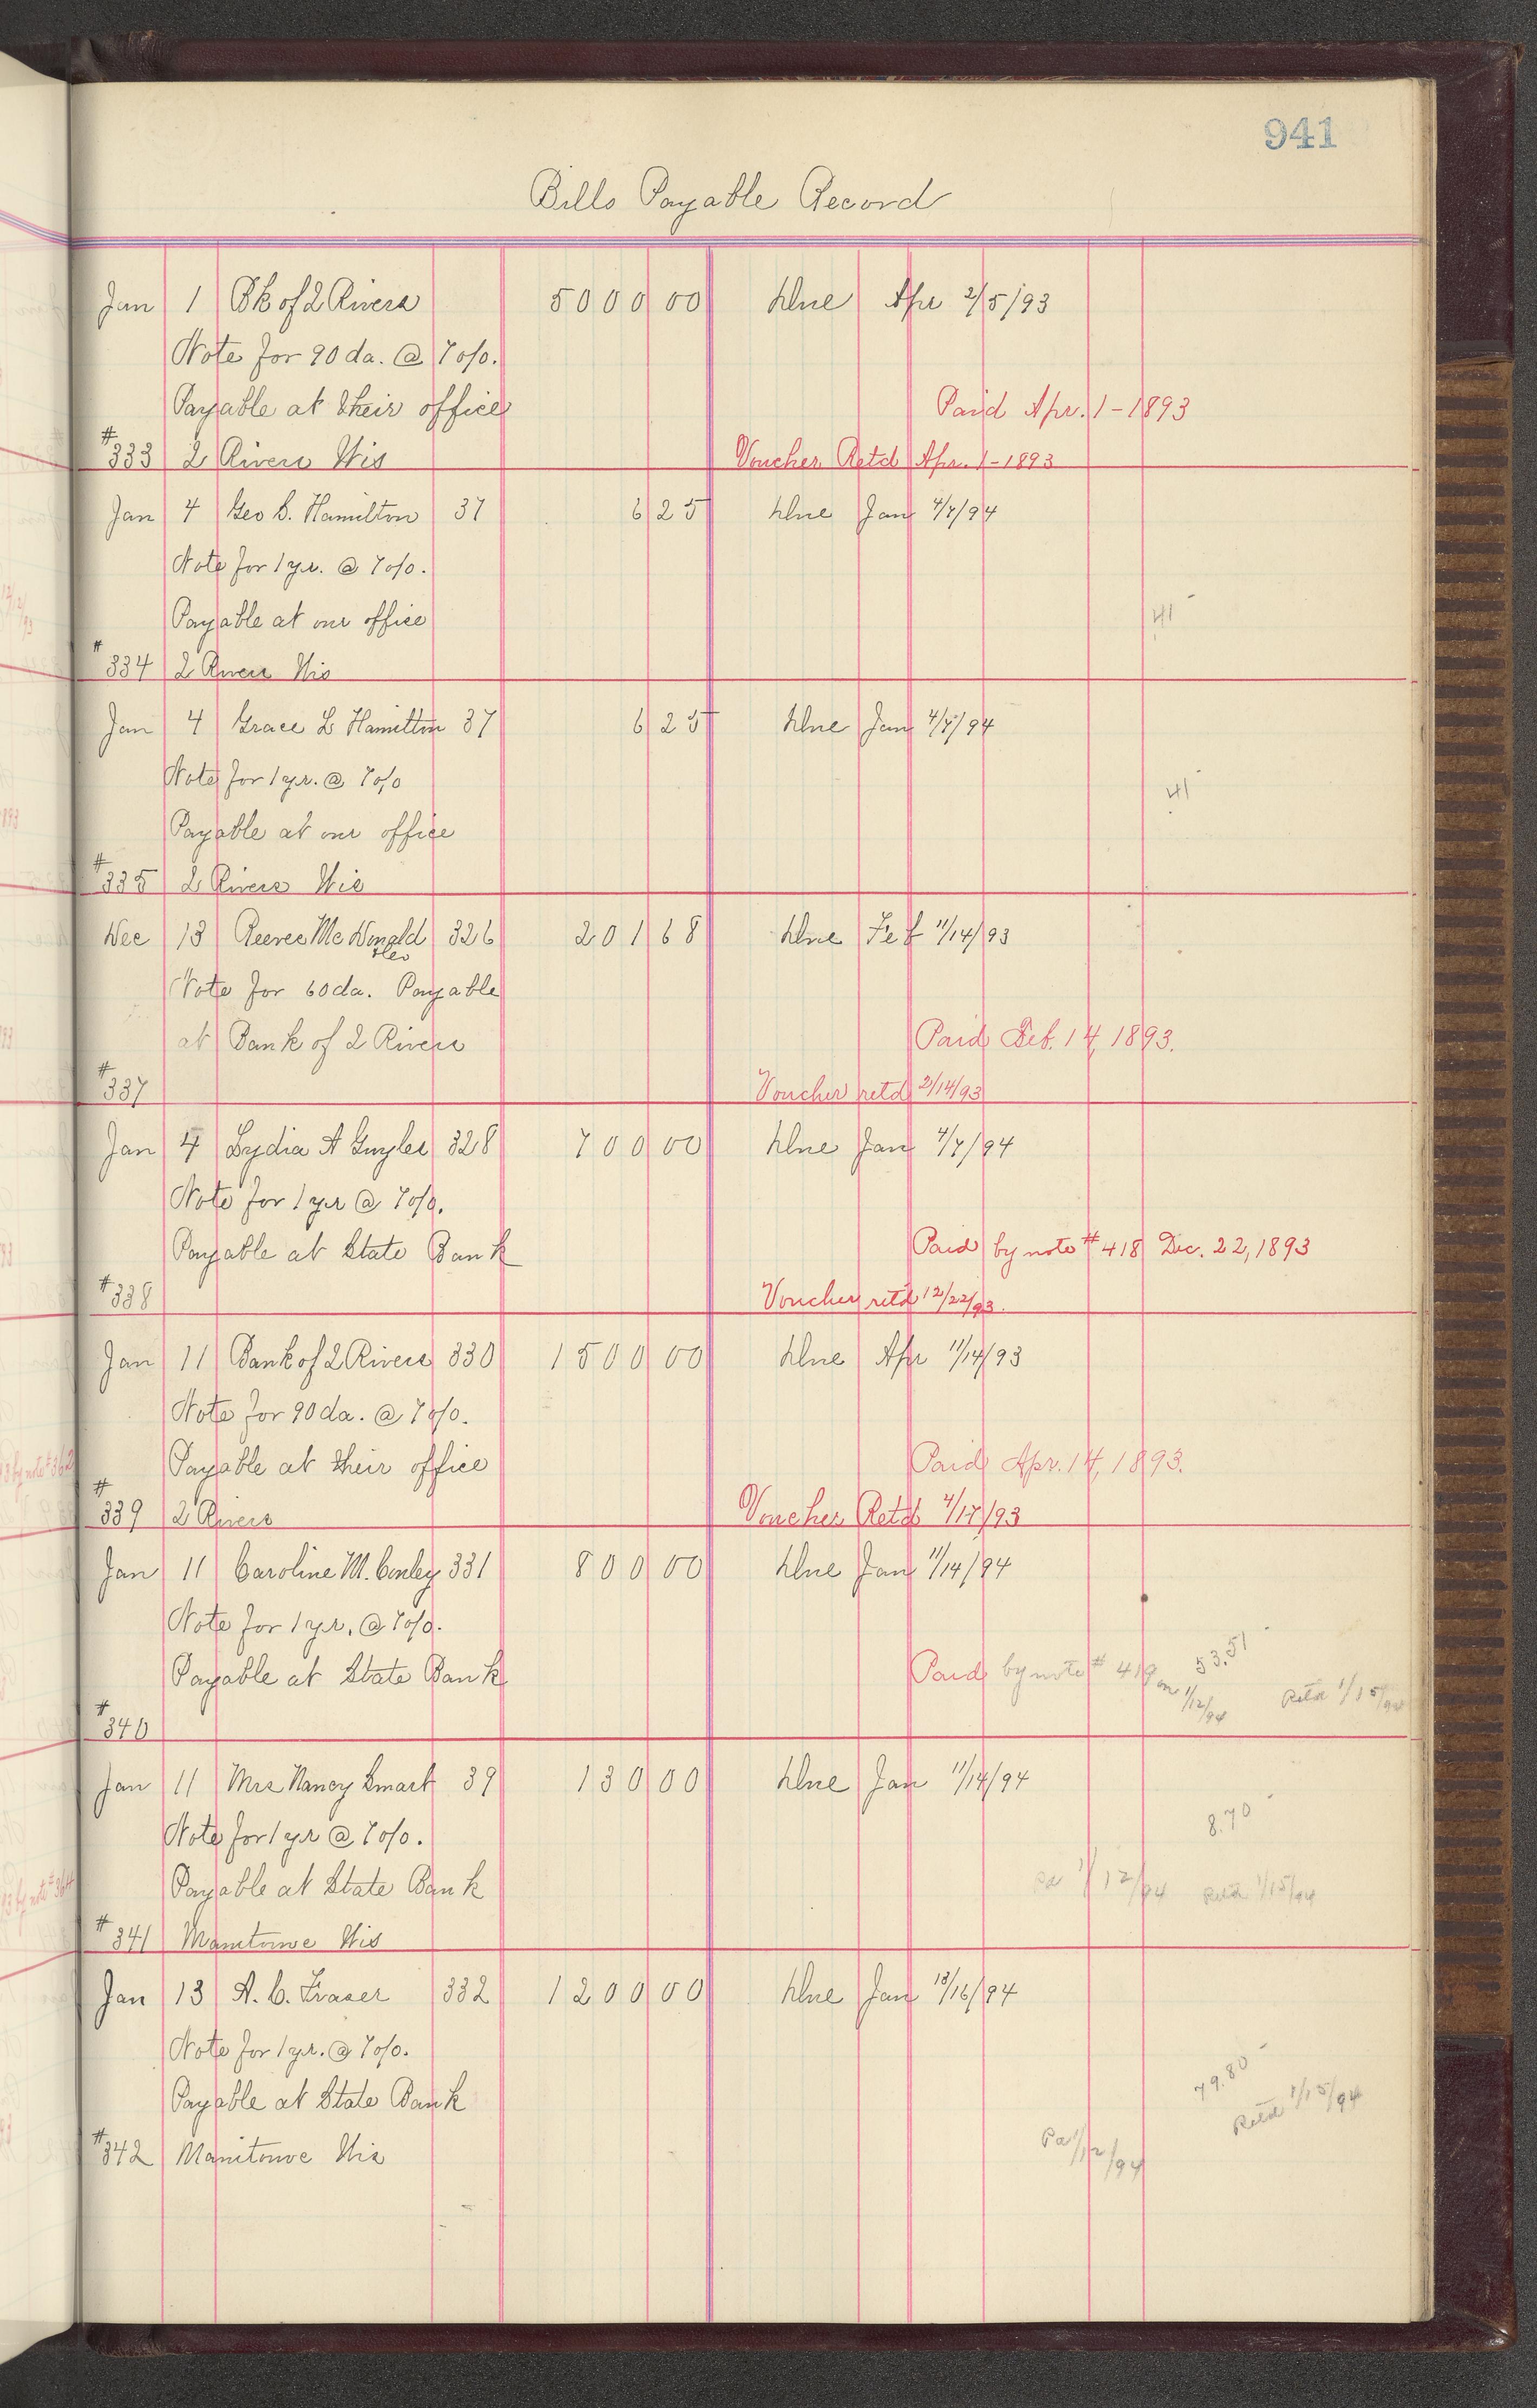 941
Bills Payable Record
Jan 1 Bk of 2 Rivers 5000 00 Due Apr 2/5/93
Note for 90 da. @ 7 o/o.
Payable at their office Paid Apr. 1-1893
#333 2 Rivers Wis Voucher Retd Apr. 1-1893
Jan 4 Geo C. Hamilton 37 6 25 Due Jan 4/7/94
Note for 1 yr. @ 7 o/o.
Payable at our office 41
#334 2 Rivers Wis
Jan 4 Grace L Hamilton 37 6 25 Due Jan 4/7/94
Note for 1 yr. @ 7 o/o
41
Payable at our office
#335 2 Rivers Wis
Dec 13 Reeves McDonald 326 201 68 Due Feb 11/14/93
Note for 60 da. Payable
at Bank of 2 Rivers Paid Feb. 14, 1893.
#337 Voucher retd 2/14/93
Jan 4 Lydia A Guyles 328 700 00 Due Jan 4/7/94
Note for 1 yr @ 7 o/o.
Payable at State Bank Paid by note #418 Dec. 22, 1893
#338 Voucher retd 12/22/93.
Jan 11 Bank of 2 Rivers 330 1500 00 Due Apr 11/14/93
Note for 90 da. @ 7 o/o.
Payable at their office Paid Apr. 14, 1893.
#339 2 Rivers Voucher Retd 4/17/93
Jan 11 Caroline M. Conley 331 800 00 Due Jan 11/14/94
Note for 1 yr. @ 7 o/o.
Payable at State Bank Paid by note # 419 on 1/12/94 53.51 Retd 1/15/94
#340
Jan 11 Mrs Nancy Smart 39 130 00 Due Jan 11/14/94
Note for 1 yr @ 7 o/o. 8.70
Payable at State Bank Pd 1/12/94 Retd 1/15/94
#341 Manitowoc Wis
Jan 13 A. C. Fraser 332 1200 00 Due Jan 13/16/94
Note for 1 yr. @ 7 o/o.
Payable at State Bank 79.80 Retd 1/15/94
#342 Manitowoc Wis Pd 1/12/94